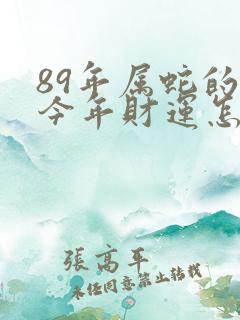 89年属蛇的
今年财运怎
張高平
未经同意禁止转载